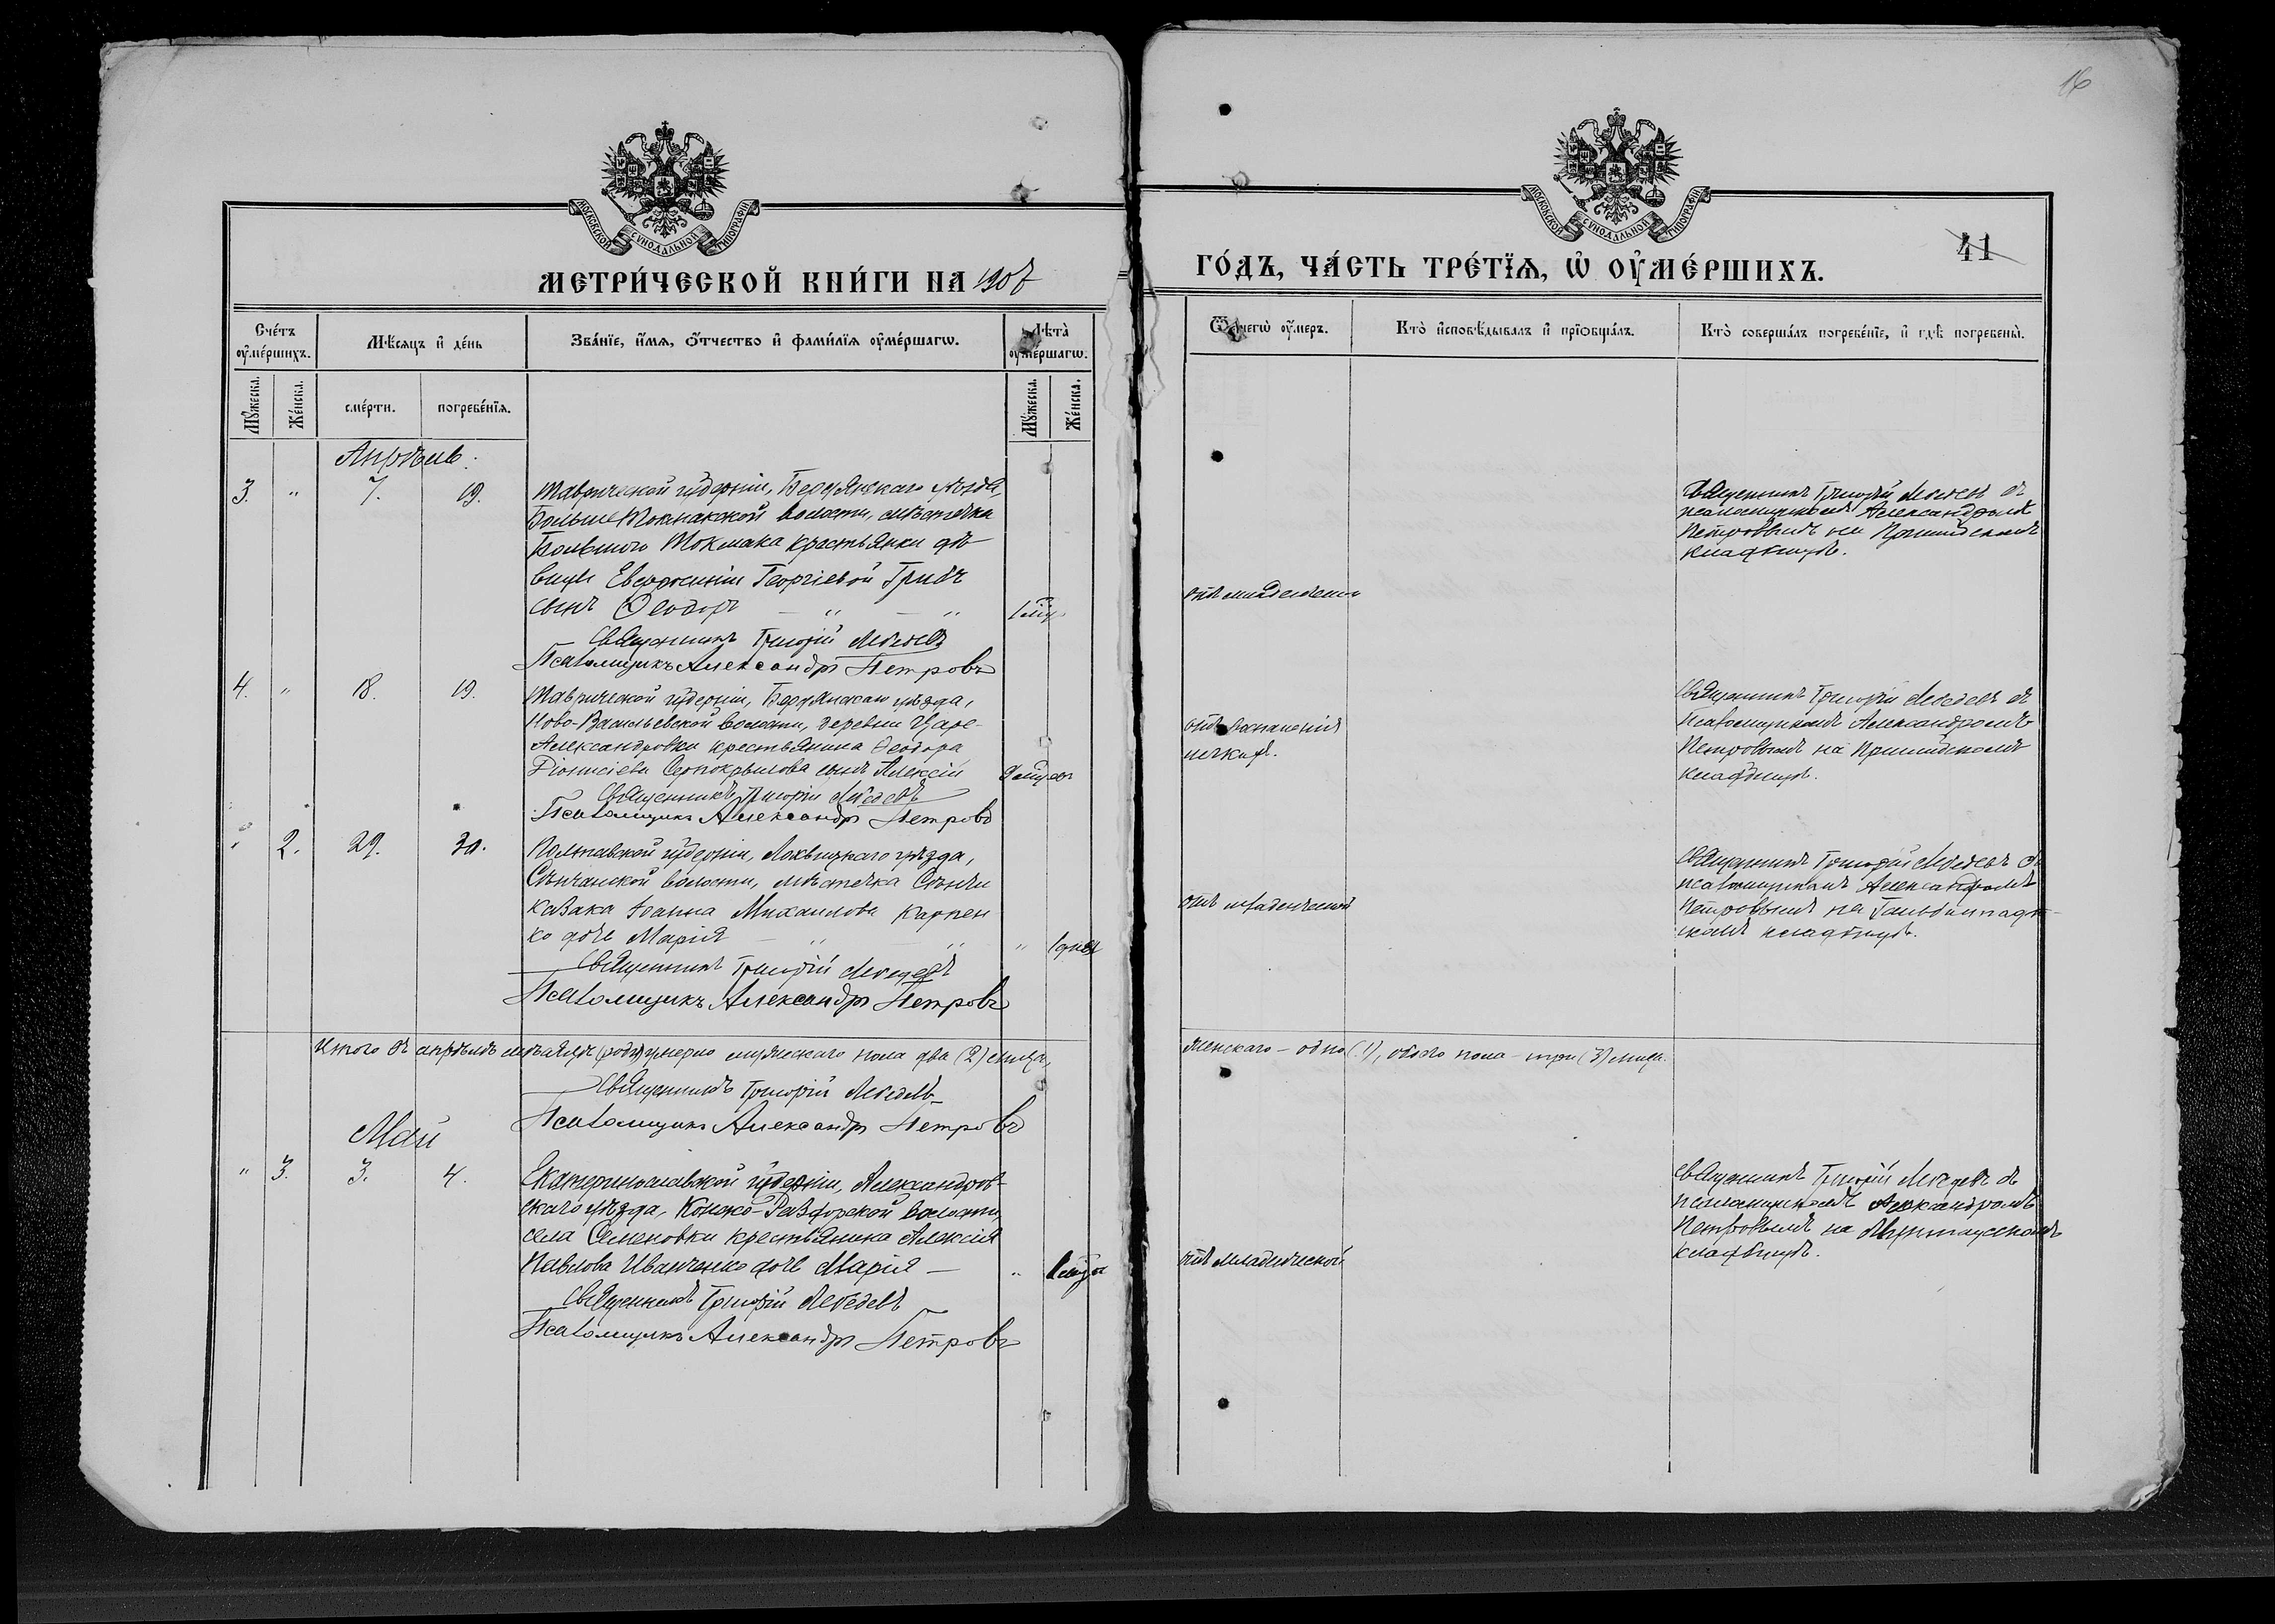 16
41
МОСКОВСКОЙ СУНОДАЛЬНОЙ ТИПОГРАФІИ
МОСКОВСКОЙ СУНОДАЛЬНОЙ ТИПОГРАФІИ
МЕТРИ́ЧЕСКОЙ КНИ́ГИ НА 190
ГО́ДЪ, ЧА́СТЬ ТРЕ́ТЇѦ, Ѡ҆ ОУ҆МЕ́РШИХЪ.
Сче́тъ оу҆ме́ршихъ.
Мѣ́сяцъ и҆ де́нь
Зва́нїе, и҆́мѧ, ѻ҆́тчество и҆ фами́лїѧ оу҆ме́ршагѡ.
Лѣ́та̀ оу҆ме́ршагѡ.
Ѿ чегѡ̀ оу҆́меръ.
Кто̀ и҆сповѣ́дывалъ и҆ прїѡбща́лъ.
Кто̀ соверша́лъ погребе́нїе, и҆ гдѣ̀ погребены̀.
Мꙋ́жеска.
Же́нска.
сме́рти.
погребе́нїѧ.
Мꙋ́жеска.
Же́нска.
Апрѣль.
3. " 7. 19.
Таврической губерніи, Бердянскаго уѣзда,
Больше Токмакской волости, мѣстечка
Большого Токмака крестьянки дѣ-
вицы Евфросиніи Георгіевой
сынъ Ѳеодоръ — " — "
Священникъ Григорій Лебедевъ
Псаломщикъ Александръ Петровъ
отъ
Священникъ Григорій Лебедевъ съ
псаломщикомъ Александромъ
Петровымъ на Пришибскомъ
кладбищѣ.
4. " 18. 19.
Таврической губерніи, Бердянскаго уѣзда,
Ново-Васильевской волости, деревни Царе-
Александровки крестьянина Ѳеодора
Діонисіева сынъ Алексій
Священникъ Григорій Лебедевъ
Псаломщикъ Александръ Петровъ
отъ воспаленія
Священникъ Григорій Лебедевъ съ
псаломщикомъ Александромъ
Петровымъ на Пришибскомъ
кладбищѣ.
" 2. 29. 30.
Полтавской губерніи, Лохвицкаго уѣзда,
Сѣнчанской волости, мѣстечка Сѣнчи
казака Іоанна Михаилова Карпен
ко дочь Марія — " — " "
Священникъ Григорій Лебедевъ
Псаломщикъ Александръ Петровъ
отъ младенческой
Священникъ Григорій Лебедевъ съ
псаломщикомъ Александромъ
Петровымъ на Гальбштадт-
скомъ кладбищѣ.
Итого въ апрѣлѣ мѣсяцѣ умерло мужескаго пола два (2) лица,
женскаго — одно (1), обоего пола — три (3) лица.
Священникъ Григорій Лебедевъ
Псаломщикъ Александръ Петровъ
Май
" 3. 3. 4.
Екатеринославской губерніи, Александров-
скаго уѣзда, Конско-Раздорской волости,
села Семеновки крестьянина Алексія
Павлова Иванченко дочь Марія — "
Священникъ Григорій Лебедевъ
Псаломщикъ Александръ Петровъ
отъ младенческой
Священникъ Григорій Лебедевъ съ
псаломщикомъ Александромъ
Петровымъ на
кладбищѣ.